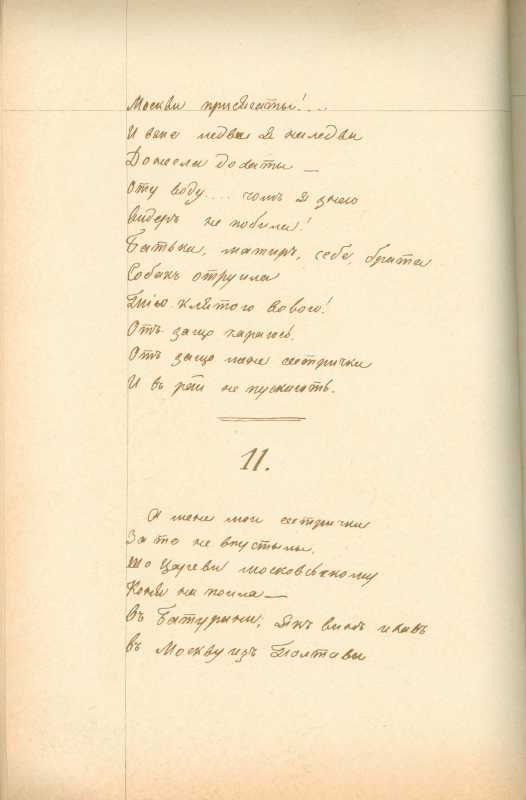 Москви присягаты!...
И вже ледви я наледви
Донесла до хаты —
Оту воду.... чомъ я зъ нею
Видеръ не побила!
Батька, матирь, себе, брата
Собакъ отруила
Тиію клятою водою!
Отъ защо караюсь,
Отъ защо мене сестрички
И въ рай не пускають.
11.
А мене мои сестрички
За те не впустылы,
Що Цареви московському
Коня напоила —
Въ Батурини; якъ винъ ихавъ
въ Москву изъ Полтавы